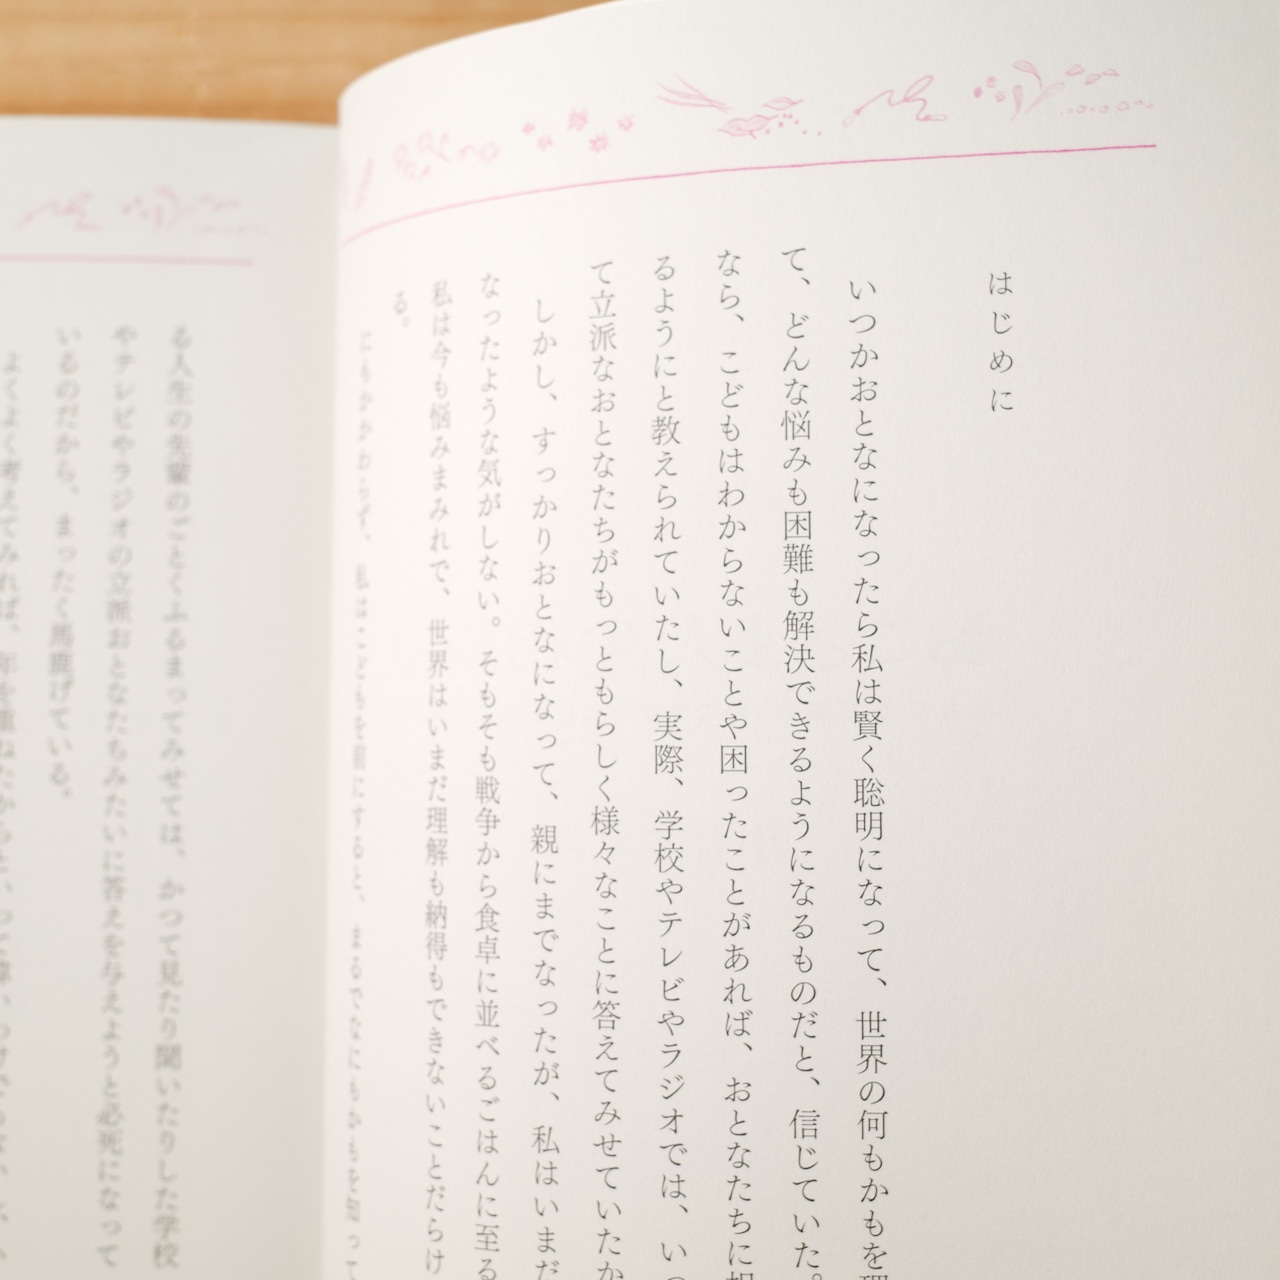 はじめに
いつかおとなになったら私は賢く聡明になって、世界の何もかもを理
て、どんな悩みも困難も解決できるようになるものだと、信じていた。
なら、こどもはわからないことや困ったことがあれば、おとなたちに相
るようにと教えられていたし、実際、学校やテレビやラジオでは、いつ
て立派なおとなたちがもっともらしく様々なことに答えてみせていたか
しかし、すっかりおとなになって、親にまでなったが、私はいまだ
なったような気がしない。そもそも戦争から食卓に並べるごはんに至る
私は今も悩みまみれで、世界はいまだ理解も納得もできないことだらけ
る。
にもかかわらず、私はこどもを前にすると、まるでなにもかもを知って
る人生の先輩のごとくふるまってみせては、かつて見たり聞いたりした学校
やテレビやラジオの立派おとなたちみたいに答えを与えようと必死になって
いるのだから、まったく馬鹿げている。
よくよく考えてみれば、年を重ねたからといって偉いわけでもないし、い